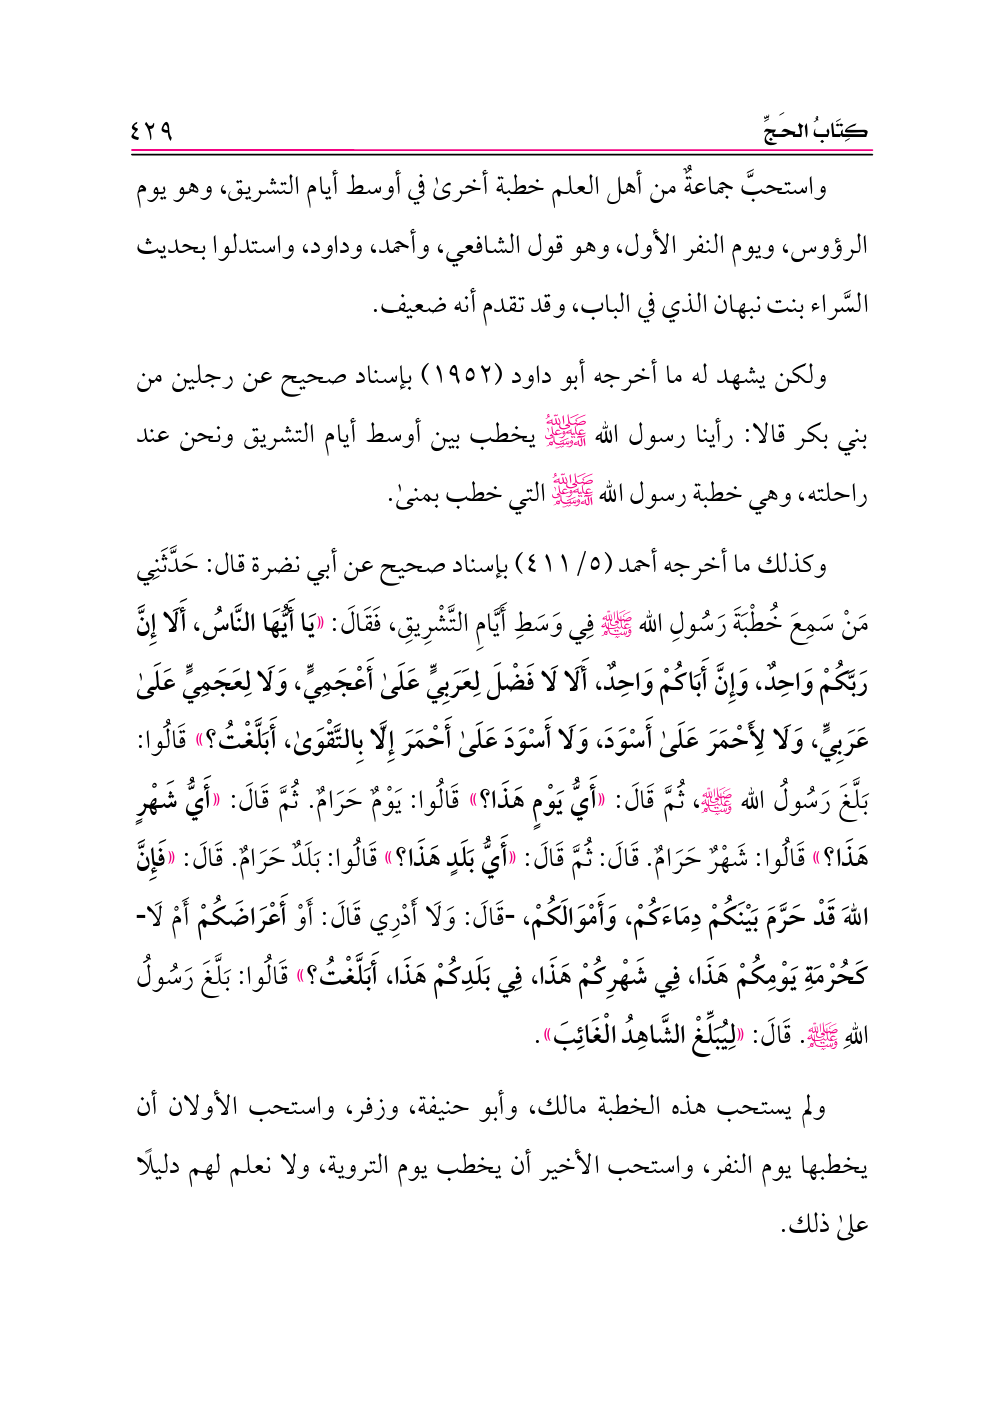 كِتَابُ الحَجِّ ٤٢٩
واستحبَّ جماعةٌ من أهل العلم خطبة أخرىٰ في أوسط أيام التشريق، وهو يوم
الرؤوس، ويوم النفر الأول، وهو قول الشافعي، وأحمد، وداود، واستدلوا بحديث
السَّراء بنت نبهان الذي في الباب، وقد تقدم أنه ضعيف.
ولكن يشهد له ما أخرجه أبو داود (١٩٥٢) بإسناد صحيح عن رجلين من
بني بكر قالا: رأينا رسول الله ﷺ يخطب بين أوسط أيام التشريق ونحن عند
راحلته، وهي خطبة رسول الله ﷺ التي خطب بمنىٰ.
وكذلك ما أخرجه أحمد (٥/ ٤١١) بإسناد صحيح عن أبي نضرة قال: حَدَّثَنِي
مَنْ سَمِعَ خُطْبَةَ رَسُولِ الله ﷺ فِي وَسَطِ أَيَّامِ التَّشْرِيقِ، فَقَالَ: «يَا أَيُّهَا النَّاسُ، أَلَا إِنَّ
رَبَّكُمْ وَاحِدٌ، وَإِنَّ أَبَاكُمْ وَاحِدٌ، أَلَا لَا فَضْلَ لِعَرَبِيٍّ عَلَىٰ أَعْجَمِيٍّ، وَلَا لِعَجَمِيٍّ عَلَىٰ
عَرَبِيٍّ، وَلَا لِأَحْمَرَ عَلَىٰ أَسْوَدَ، وَلَا أَسْوَدَ عَلَىٰ أَحْمَرَ إِلَّا بِالتَّقْوَىٰ، أَبَلَّغْتُ؟» قَالُوا:
بَلَّغَ رَسُولُ الله ﷺ، ثُمَّ قَالَ: «أَيُّ يَوْمٍ هَذَا؟» قَالُوا: يَوْمٌ حَرَامٌ. ثُمَّ قَالَ: «أَيُّ شَهْرٍ
هَذَا؟» قَالُوا: شَهْرٌ حَرَامٌ. قَالَ: ثُمَّ قَالَ: «أَيُّ بَلَدٍ هَذَا؟» قَالُوا: بَلَدٌ حَرَامٌ. قَالَ: «فَإِنَّ
اللهَ قَدْ حَرَّمَ بَيْنَكُمْ دِمَاءَكُمْ، وَأَمْوَالَكُمْ، -قَالَ: وَلَا أَدْرِي قَالَ: أَوْ أَعْرَاضَكُمْ أَمْ لَا-
كَحُرْمَةِ يَوْمِكُمْ هَذَا، فِي شَهْرِكُمْ هَذَا، فِي بَلَدِكُمْ هَذَا، أَبَلَّغْتُ؟» قَالُوا: بَلَّغَ رَسُولُ
اللهِ ﷺ. قَالَ: «لِيُبَلِّغْ الشَّاهِدُ الْغَائِبَ».
ولم يستحب هذه الخطبة مالك، وأبو حنيفة، وزفر، واستحب الأولان أن
يخطبها يوم النفر، واستحب الأخير أن يخطب يوم التروية، ولا نعلم لهم دليلًا
علىٰ ذلك.